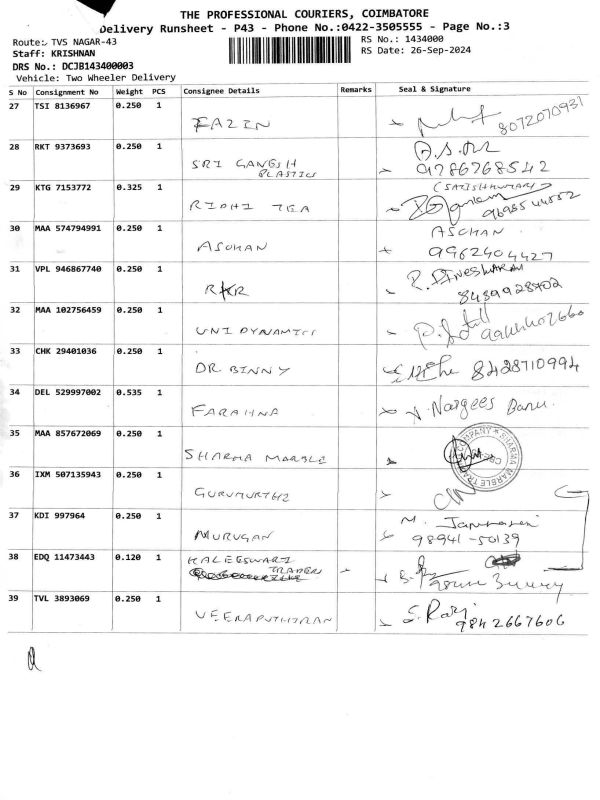 THE PROFESSIONAL COURIERS, COIMBATORE
Delivery Runsheet - P43 - Phone No.:0422-3505555 - Page No.:3
Route: TVS NAGAR-43
RS No.: 1434000
Staff: KRISHNAN
RS Date: 26-Sep-2024
DRS No.: DCJB143400003
Vehicle: Two Wheeler Delivery
S No Consignment No Weight PCS Consignee Details Remarks Seal & Signature
27 TSI 8136967 0.250 1
FAZIN 8072070931
28 RKT 9373693 0.250 1
SRI GANESH
PLASTICS 9786768542
29 KTG 7153772 0.325 1 (SATISHKUMAR)
RIDHI TEA
30 MAA 574794991 0.250 1 ASCHAN
ASCHAN 9962404427
31 VPL 946867740 0.250 1 R. DINESHKARAN
RKR 8489928702
32 MAA 102756459 0.250 1
UNI DYNAMICS
33 CHK 29401036 0.250 1
DR. BINNY 8428710994
34 DEL 529997002 0.535 1
FARAHNA A. Nargees Banu.
35 MAA 857672069 0.250 1
SHARMA MARBLE SHARMA MARBLE TRADING COMPANY CBE
36 IXM 507135943 0.250 1
GURUMURTHI
37 KDI 997964 0.250 1
MURUGAN 98941-50139
38 EDQ 11473443 0.120 1 KALEESWARI
TRADERS
39 TVL 3893069 0.250 1 S. Raj
VEERAPUTHIRAN 9842667606